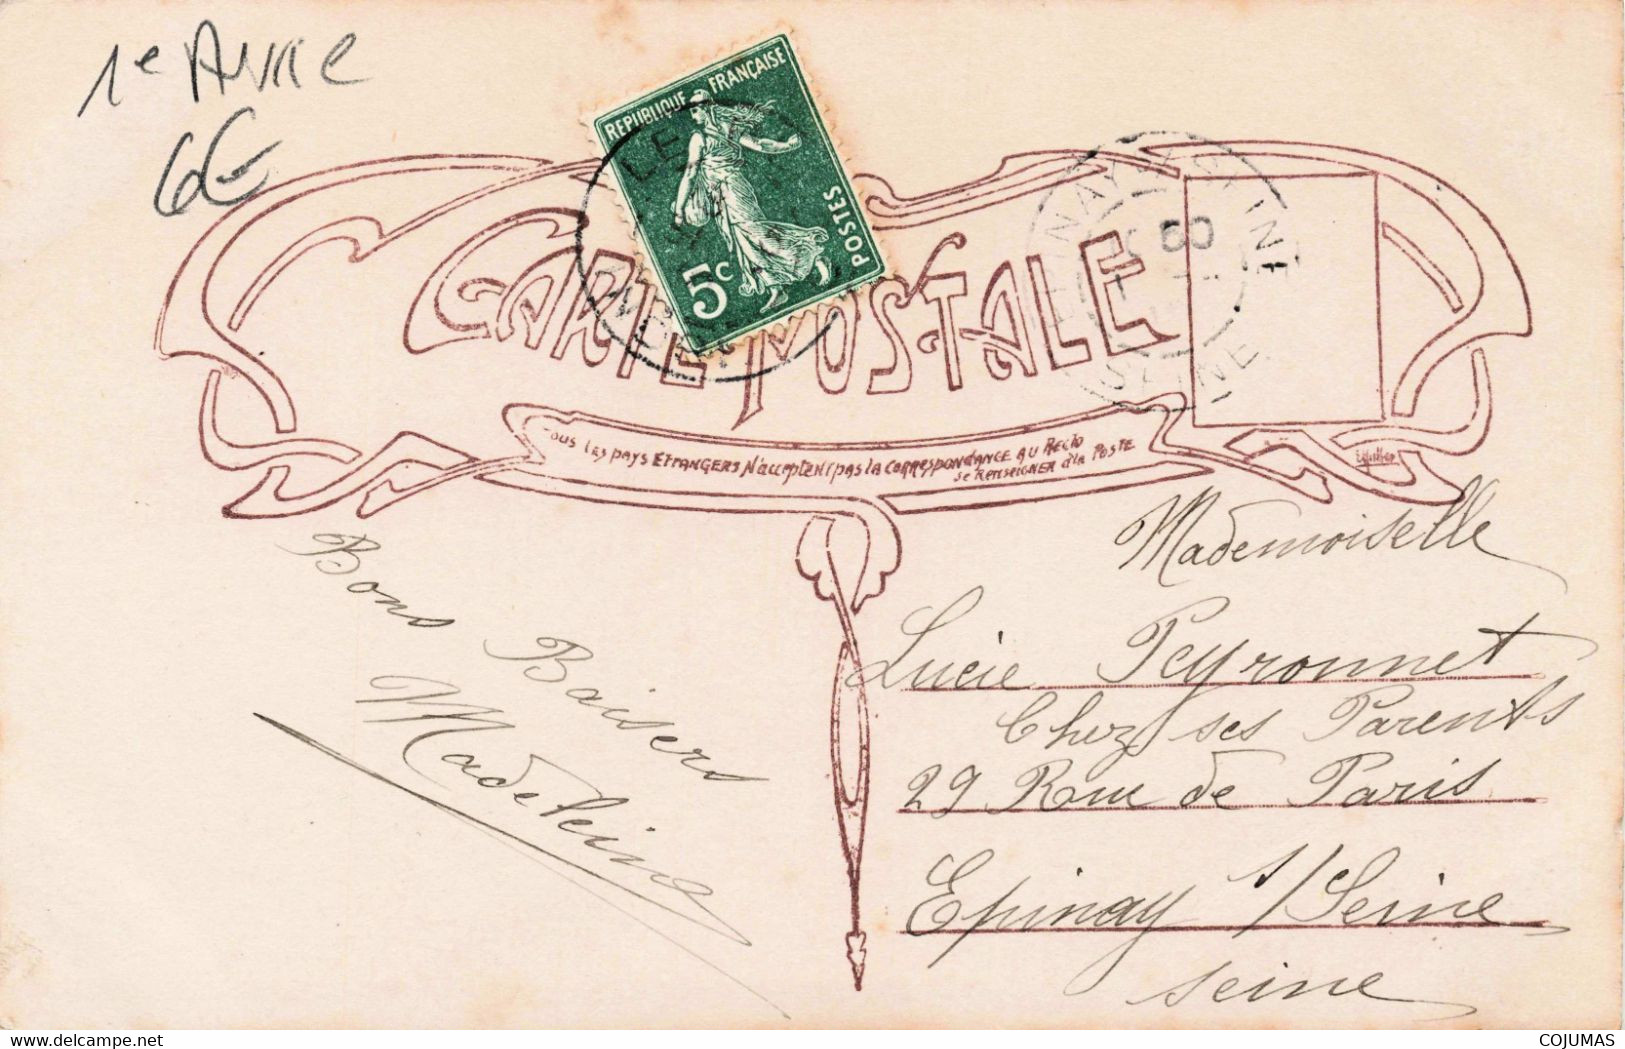 1e Avril
6€
REPUBLIQUE FRANÇAISE
POSTES
5c
EPINAY
SEINE
CARTE POSTALE
Tous les pays Etrangers n'acceptent pas la correspondance au Recto
se renseigner à la Poste
Bons Baisers
Madeleine
Mademoiselle
Lucie Peyronnet
Chez ses Parents
29 Rue de Paris
Epinay s/Seine
seine
COJUMAS